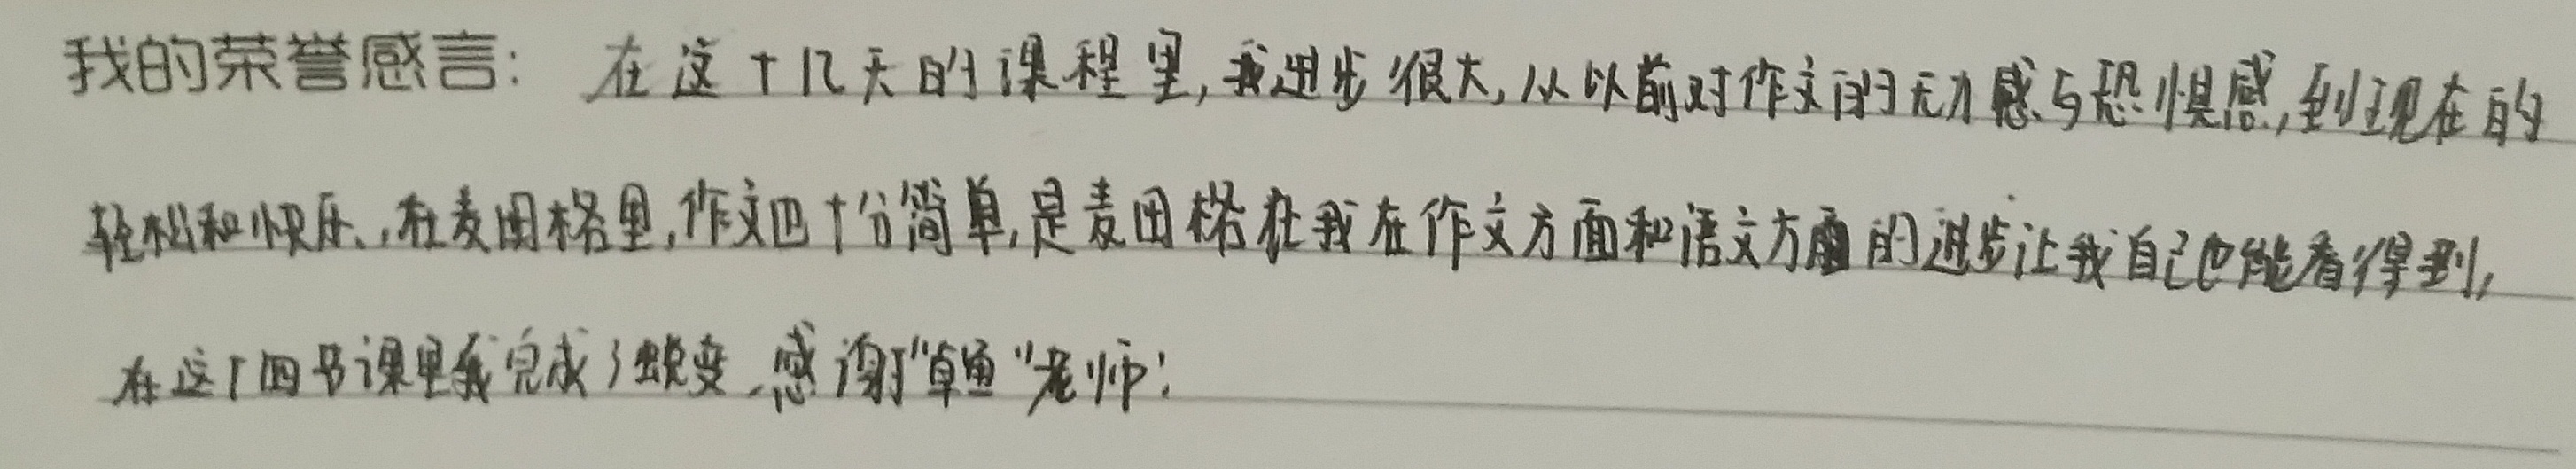 我的荣誉感言：在这十几天的课程里,我进步很大,从以前对作文的无力感与恐惧感,到现在的
轻松和快乐,在麦田格里,作文也十分简单,是麦田格在我在作文方面和语文方面的进步让我自己也能看得到,
在这十四节课里我完成了蜕变,感谢"章鱼"老师!